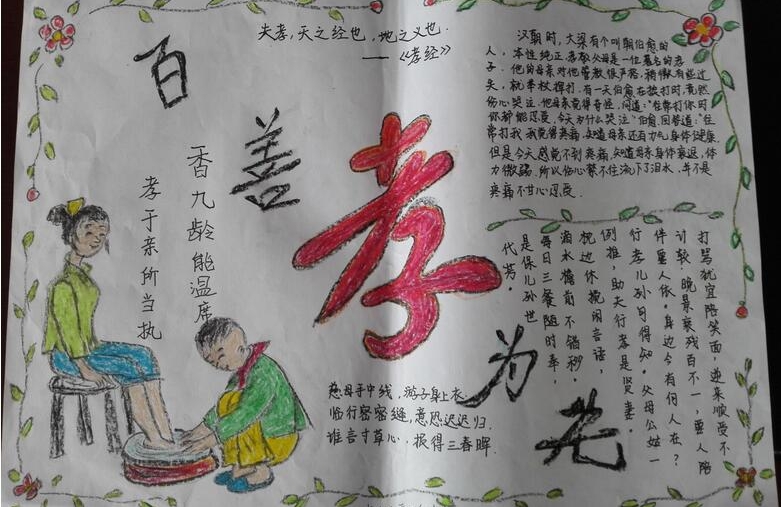 百善孝为先
夫孝,天之经也,地之义也.
——《孝经》
汉朝时,大梁有个叫朝伯愈的
人,本性纯正,孝敬父母是一位著名的孝
子.他的母亲对他管教很严格,稍微有些过
失,就举杖挥打.有一天伯愈在挨打时,竟然
伤心哭泣.他母亲觉得奇怪,问道:"往常打你时
你都能忍受,今天为什么哭泣"伯愈回答道:"往
常打我 我觉得疼痛,知道母亲还有力气身体健康
但是今天感觉不到疼痛,知道母亲身体衰退,体
力微弱.所以伤心禁不住流下了泪水,并不是
疼痛不甘心忍受.
香九龄能温席
孝于亲所当执
打骂就宜陪笑面,逆来顺受不
计较.晚景衰残百不一,要人陪
伴要人依.身边今有何人在?
行孝儿孙可得知.父母公姑一
例推,助夫行孝是贤妻.
枕边休掩闲言语,
滴水檐前不错移.
每日三餐随时奉,
是保儿孙世
代芳.
慈母手中线,游子身上衣
临行密密缝,意恐迟迟归.
谁言寸草心,报得三春晖.